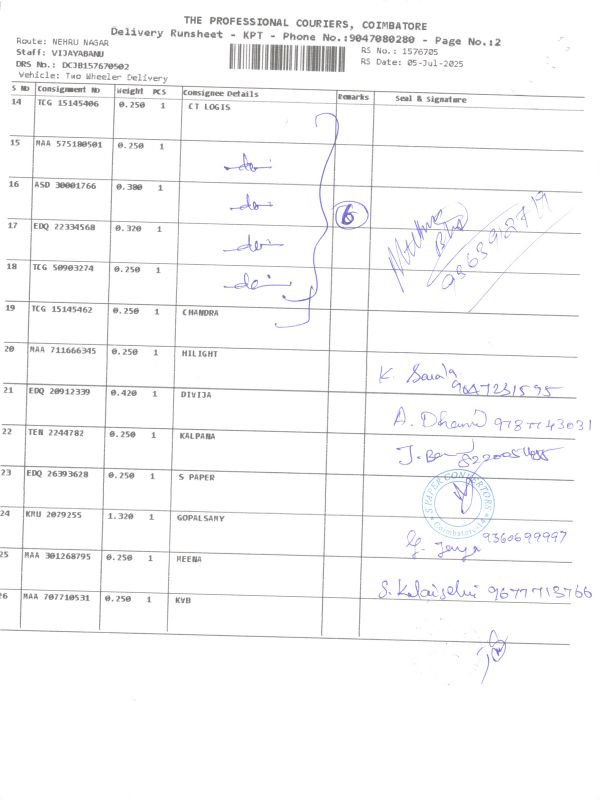 THE PROFESSIONAL COURIERS, COIMBATORE
Delivery Runsheet - KPT - Phone No.:9047080280 - Page No.:2
Route: NEHRU NAGAR
Staff: VIJAYABANU
DRS No.: DCJB157670502
Vehicle: Two Wheeler Delivery
RS No.: 1576705
RS Date: 05-Jul-2025
S No Consignment No Weight PCS Consignee Details Remarks Seal & Signature
14 TCG 15145406 0.250 1 CT LOGIS
15 MAA 575180501 0.250 1 -do-
16 ASD 30001766 0.380 1 -do- 6
17 EDQ 22334568 0.320 1 -do-
18 TCG 50903274 0.250 1 -do-
19 TCG 15145462 0.250 1 CHANDRA
20 MAA 711666345 0.250 1 HILIGHT
K. Sarala 9047231595
21 EDQ 20912339 0.420 1 DIVIJA
A. Dhanu 9787743031
22 TEN 2244782 0.250 1 KALPANA
23 EDQ 26393628 0.250 1 S PAPER
S PAPER CONVERTORS
Coimbatore-14
24 KMU 2079255 1.320 1 GOPALSAMY
9360699997
25 MAA 301268795 0.250 1 MEENA
S. Kalaiselvi 9677713766
26 MAA 707710531 0.250 1 KVB